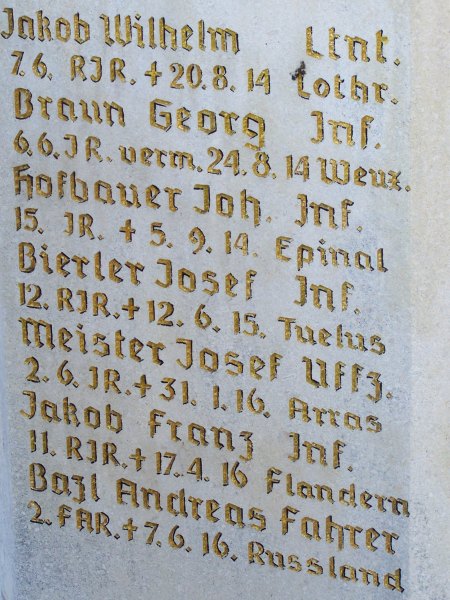 Jakob Wilhelm Ltnt.
7.6. RJR. + 20.8.14 Lothr.
Braun Georg Inf.
6.6. J R. verm. 24.8.14 Weuz.
Hofbauer Joh. Inf.
15. JR. + 5. 9. 14. Epinal
Bierler Josef Inf.
12. RJR. + 12. 6. 15. Tuelus
Meister Josef Uffz.
2. 6. JR. + 31. 1. 16. Arras
Jakob Franz Inf.
11. RJR. + 17. 4. 16 Flandern
Bazl Andreas Fahrer
2. FAR. + 7. 6. 16. Russland